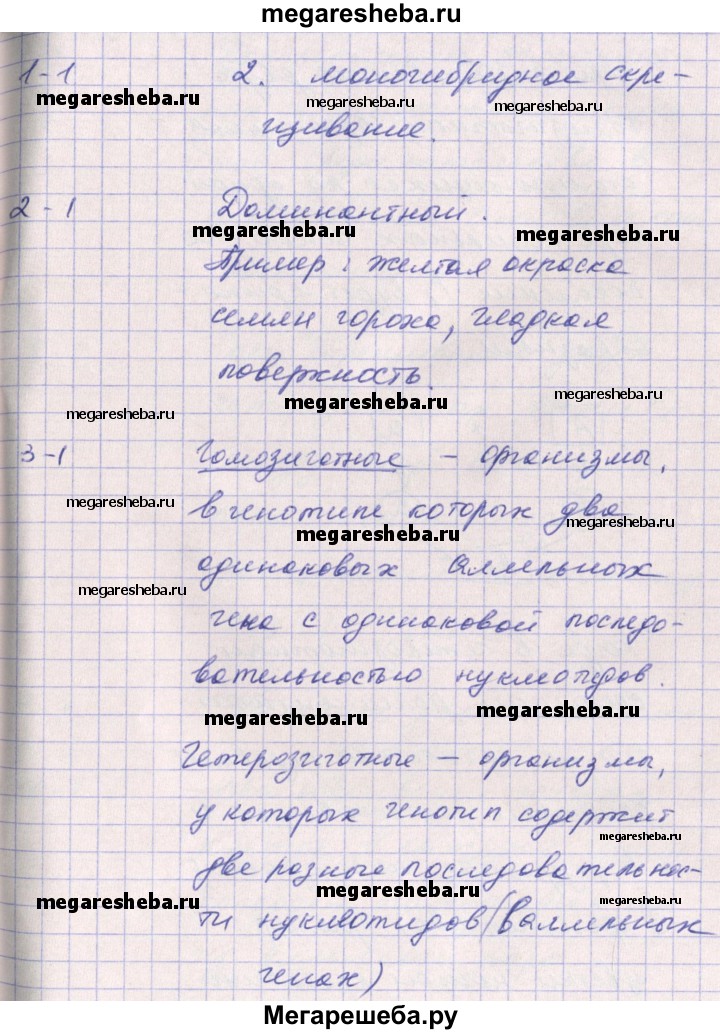 megaresheba.ru
1-1 2. моногибридное скре-
megaresheba.ru megaresheba.ru megaresheba.ru
щивание.
2-1 Доминантный.
megaresheba.ru megaresheba.ru
Пример: желтая окраска
семян гороха, гладкая
поверхность.
megaresheba.ru megaresheba.ru megaresheba.ru
3-1 Гомозиготные – организмы,
в генотипе которых два
megaresheba.ru megaresheba.ru megaresheba.ru
одинаковых аллельных
megaresheba.ru
гена с одинаковой последо-
вательностью нуклеотидов.
megaresheba.ru megaresheba.ru
Гетерозиготные – организмы,
у которых генотип содержит
megaresheba.ru
две разные последовательнос-
megaresheba.ru megaresheba.ru megaresheba.ru
ти нуклеотидов (в аллельных
генах)
Мегарешеба.ру